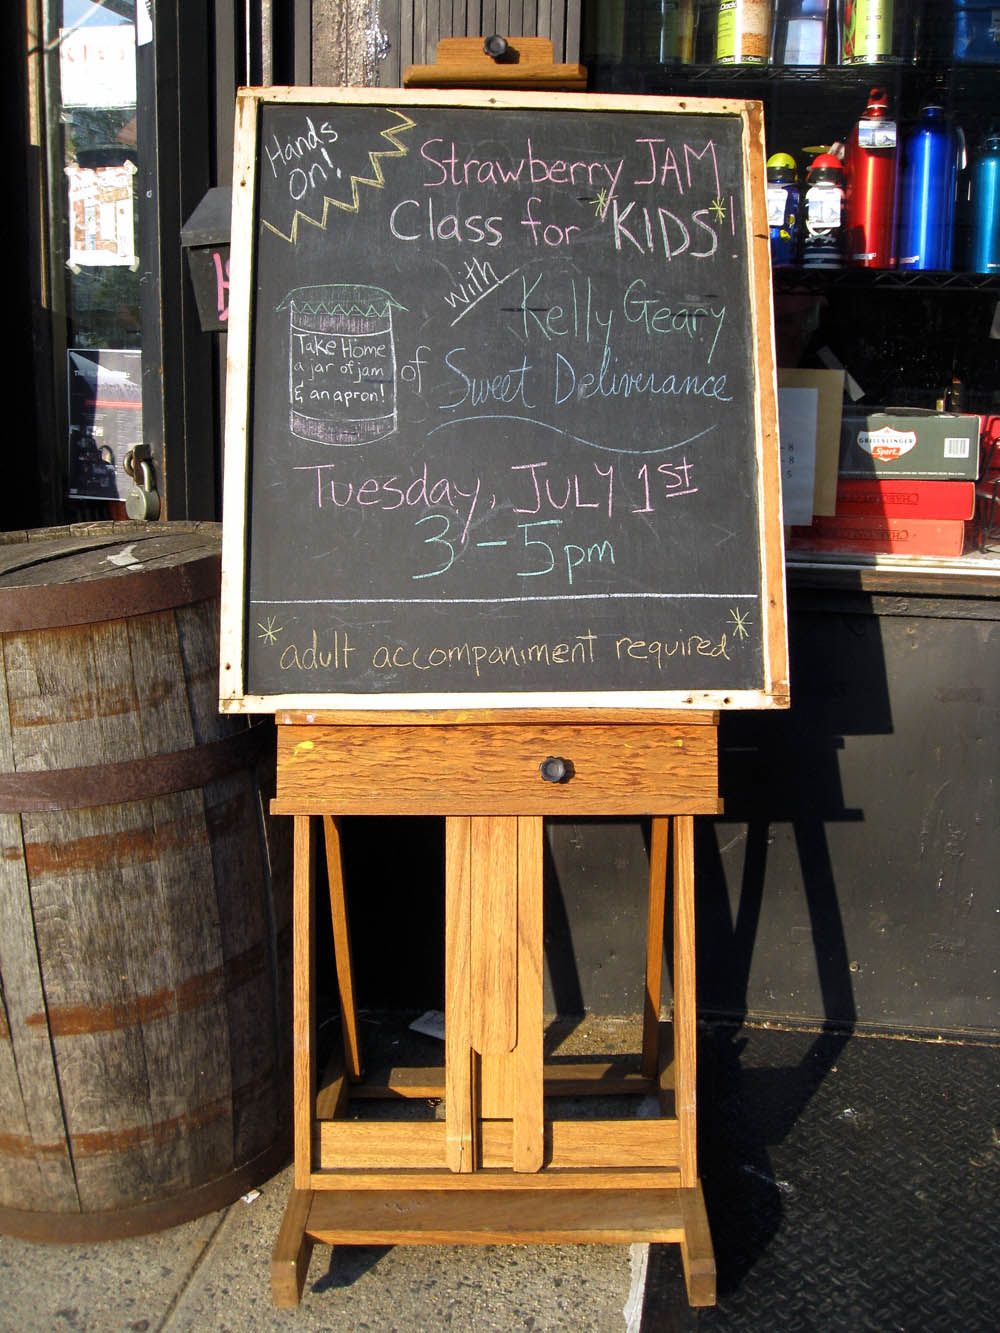 Hands
on!
Strawberry JAM
Class for *KIDS*!
with
Kelly Geary
Take Home
a jar of jam
& an apron!
of Sweet Deliverance
Tuesday, JULY 1st
3-5pm
*adult accompaniment required*
GRILLSLINGER
Sport